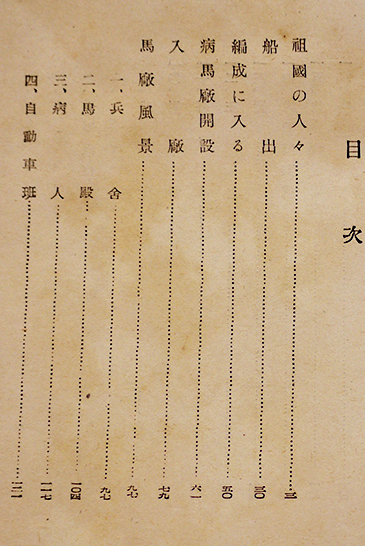 目次
祖國の人々……三
船出……三〇
編成に入る……五〇
病馬廠開設……六一
入廠……七九
馬廠風景……九七
一、兵舍……九七
二、馬殿……一〇四
三、病人……一一七
四、自動車班……一二一